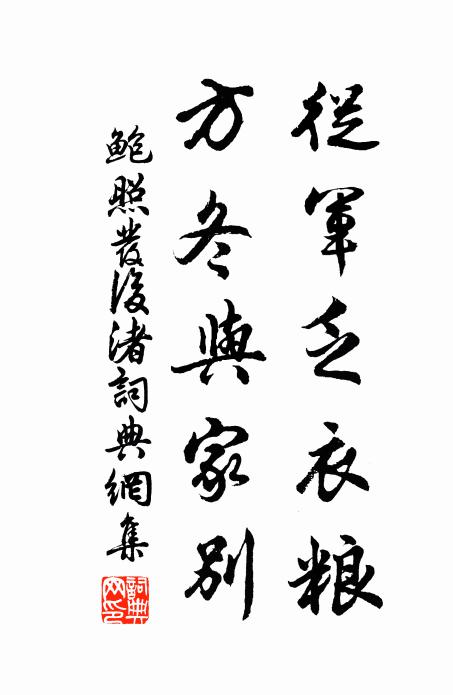 從軍乏衣粮
方冬與家別
鮑照發後渚詞典網集
詞典網印